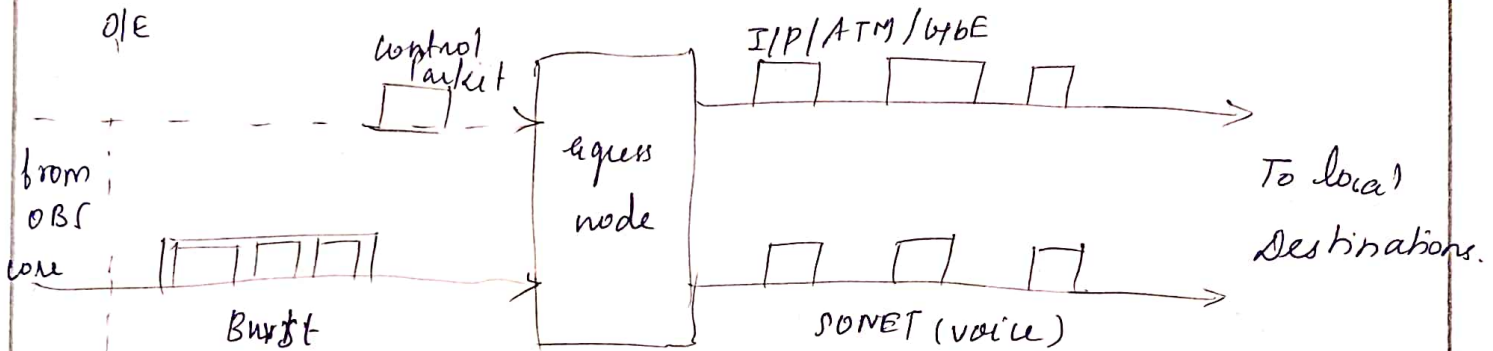 O/E
control
Packet
I/P/ATM/GbE
from
OBS
core
egress
node
To local
Destinations.
Burst
SONET (voice)